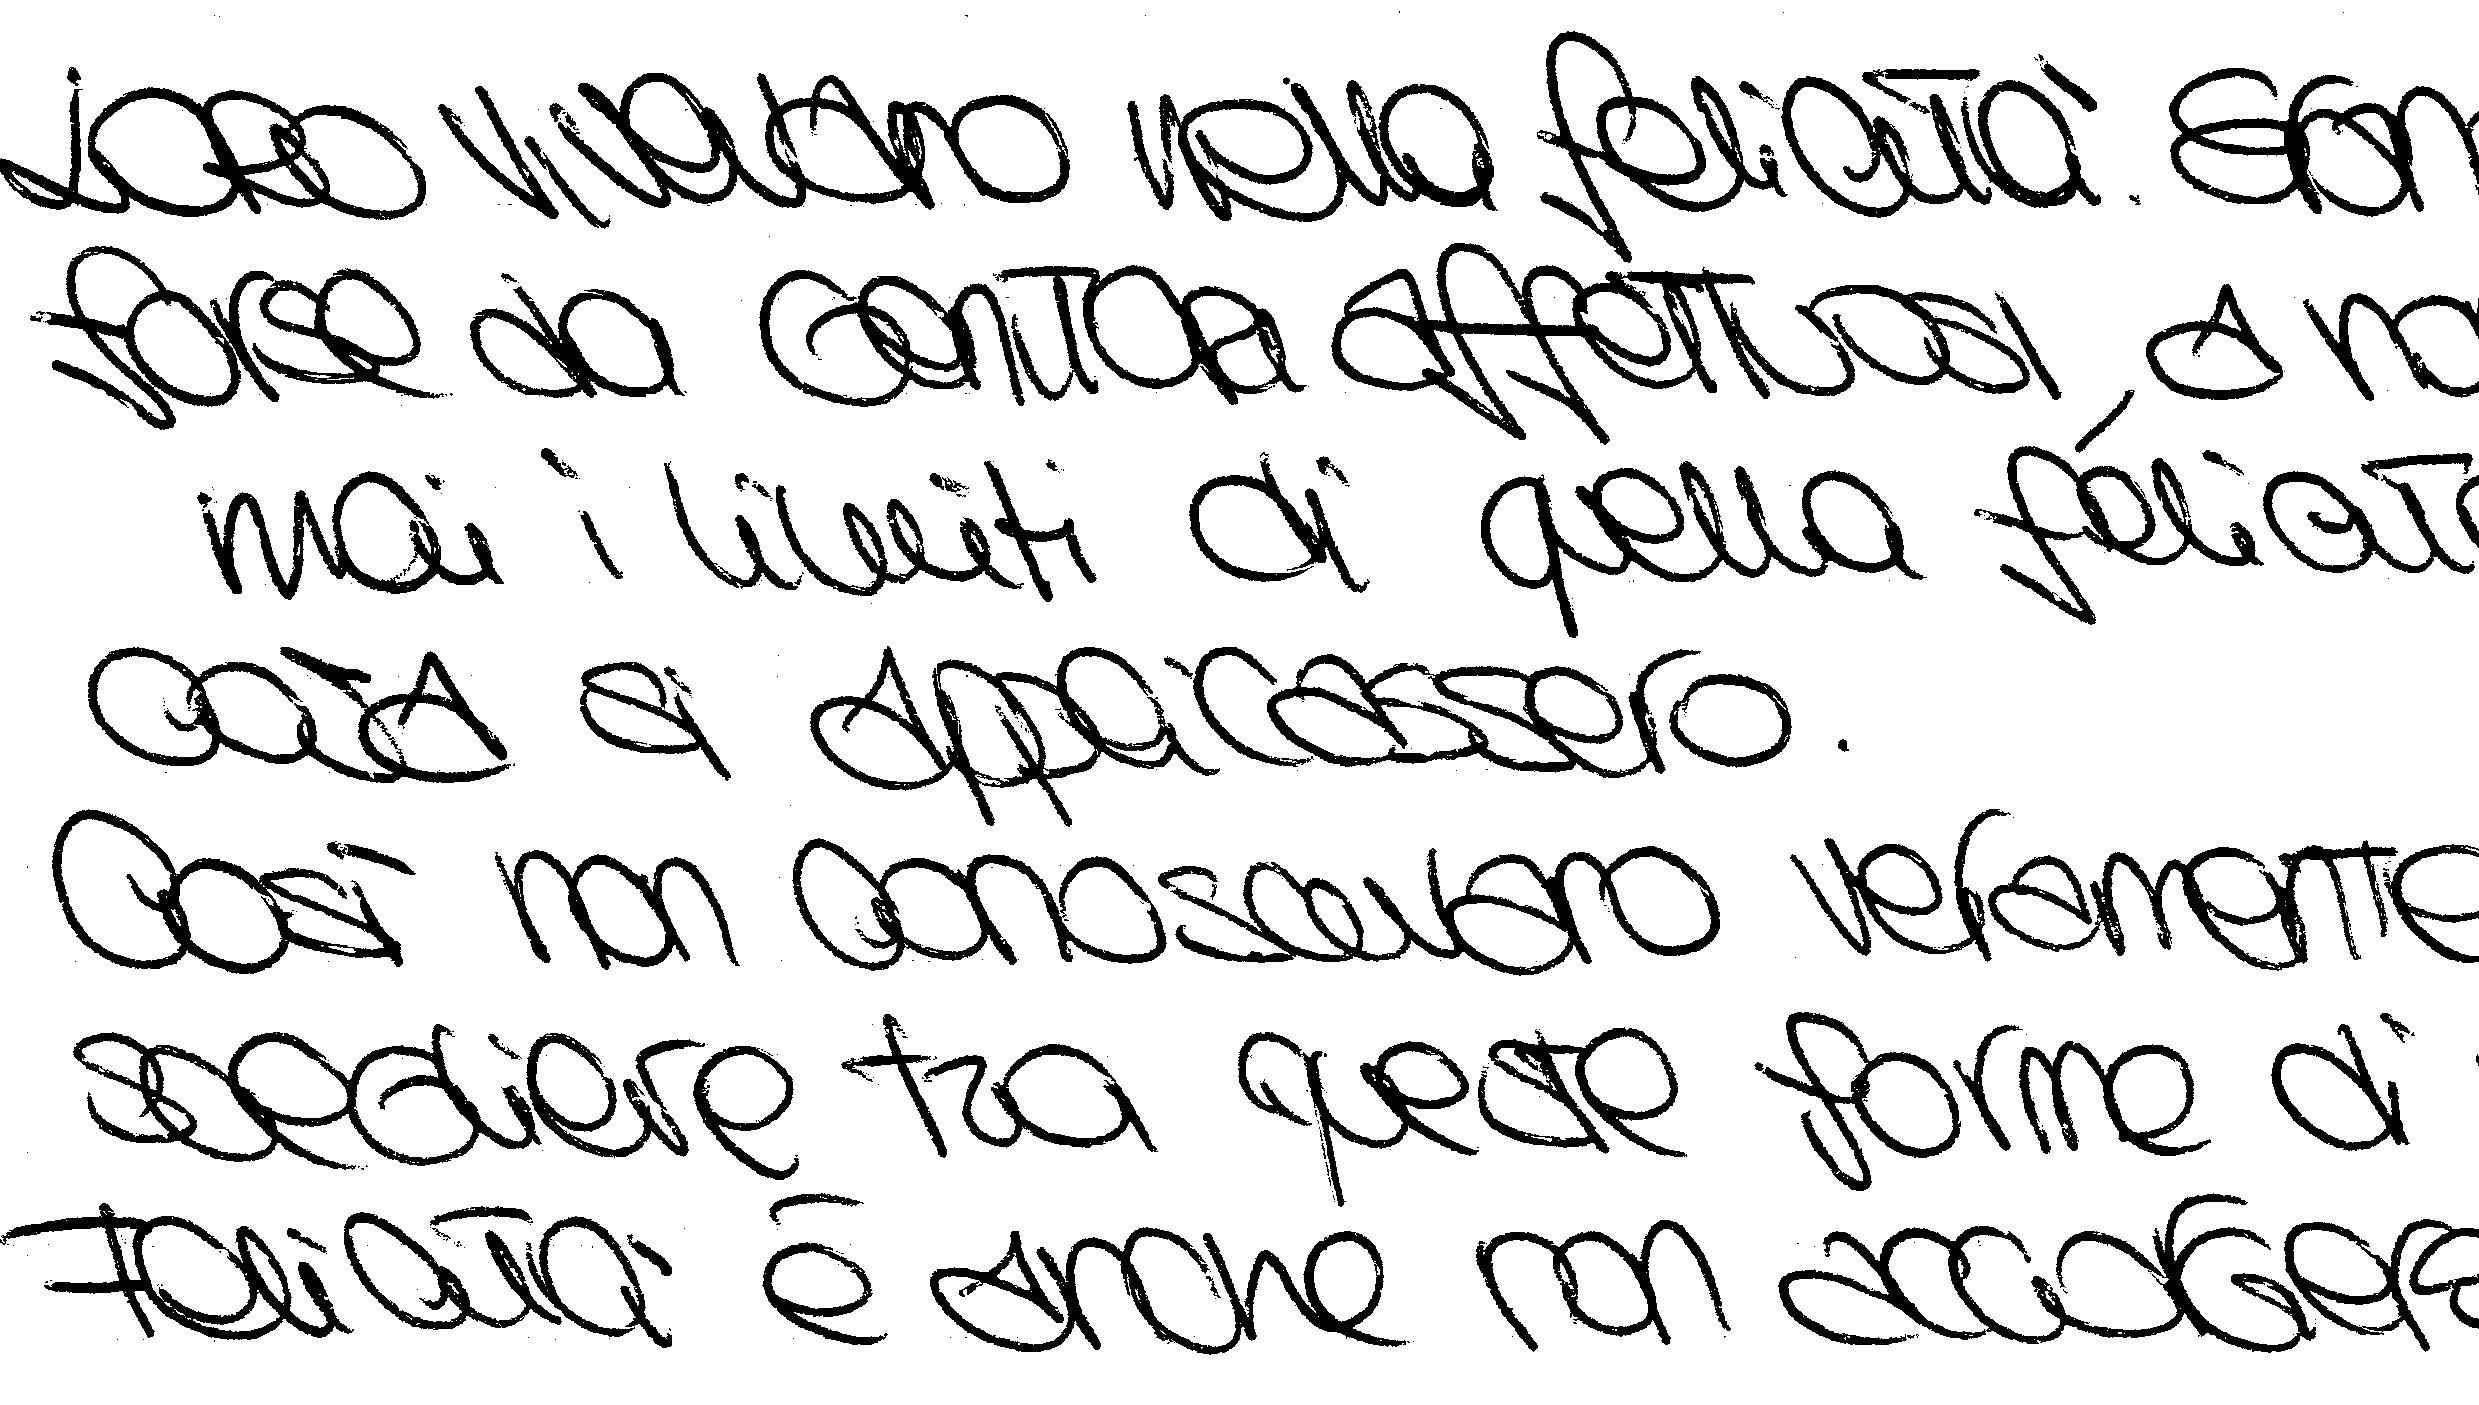 Loro vivevano nella felicità. Eran
forse da Genitori affettuosi, a no
mai i limiti di quella felicità
Così non conoscevano veramente
scegliere tra queste forme di
Felicità è anche non accorgers